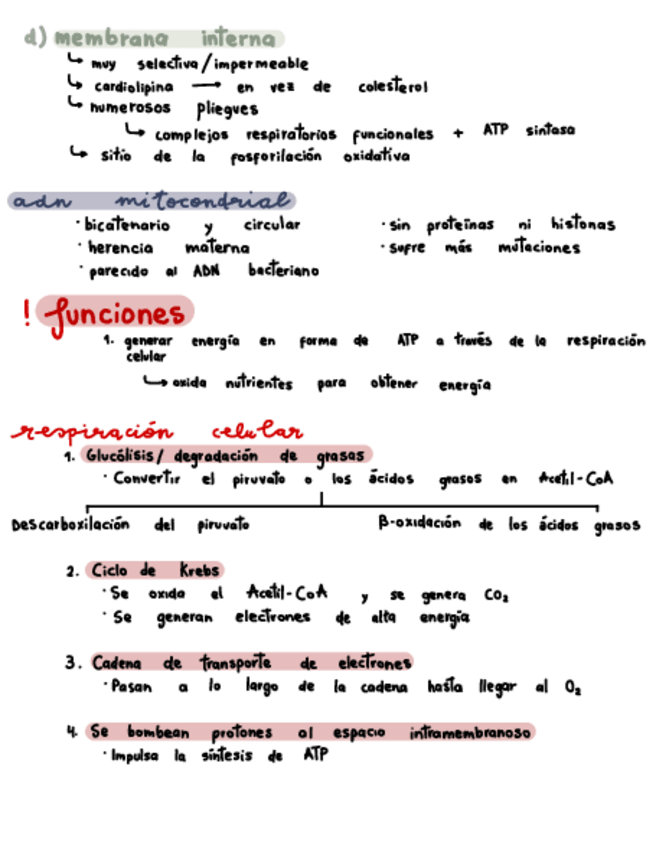 d) membrana interna
↳ muy selectiva/impermeable
↳ cardiolipina → en vez de colesterol
↳ numerosos pliegues
↳ complejos respiratorios funcionales + ATP sintasa
↳ sitio de la fosforilación oxidativa
adn mitocondrial
· bicatenario y circular
· herencia materna
· parecido al ADN bacteriano
· sin proteínas ni histonas
· sufre más mutaciones
! funciones
1. generar energía en forma de ATP a través de la respiración
celular
↳ oxida nutrientes para obtener energía
respiración celular
1. Glucólisis/ degradación de grasas
· Convertir el piruvato o los ácidos grasos en Acetil-CoA
Descarboxilación del piruvato
β-oxidación de los ácidos grasos
2. Ciclo de Krebs
· Se oxida el Acetil-CoA y se genera CO₂
· Se generan electrones de alta energía
3. Cadena de transporte de electrones
· Pasan a lo largo de la cadena hasta llegar al O₂
4. Se bombean protones al espacio intramembranoso
· Impulsa la síntesis de ATP